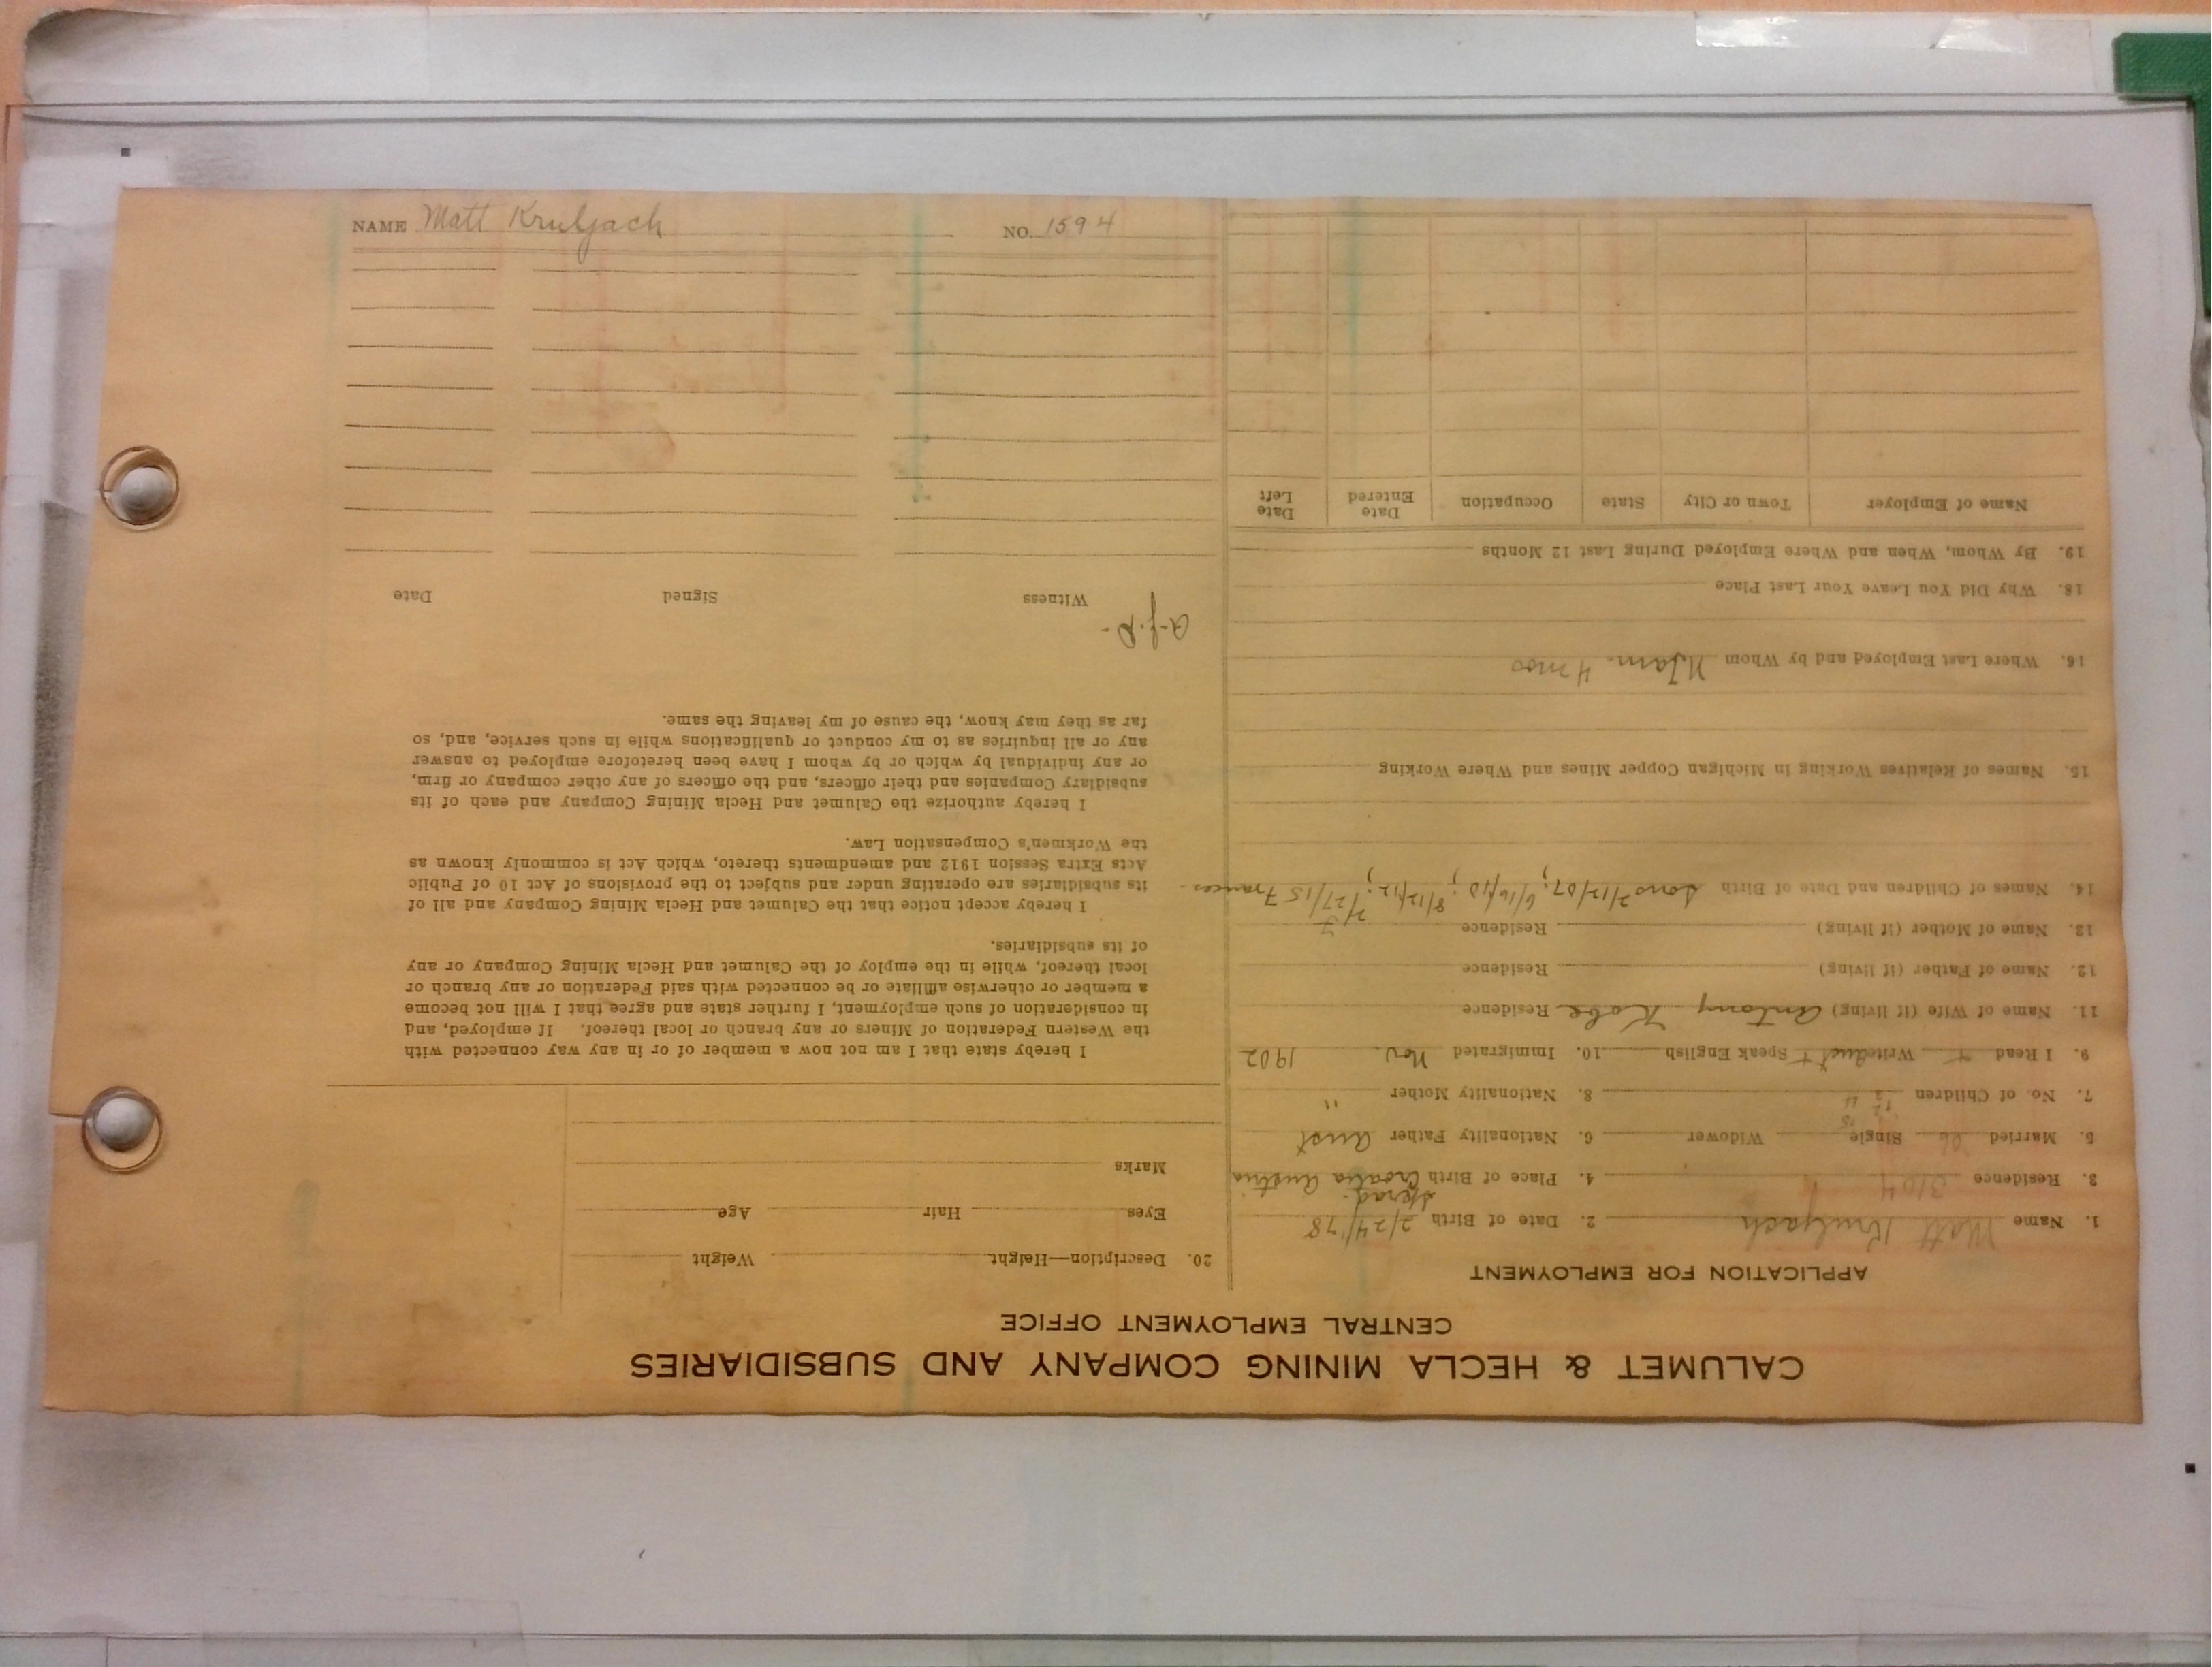 CALUMET & HECLA MINING COMPANY AND SUBSIDIARIES
CENTRAL EMPLOYMENT OFFICE
APPLICATION FOR EMPLOYMENT
1. Name Matt Kruljach 2. Date of Birth 2/24/78
3. Residence 3104 4. Place of Birth Croatia Austria
5. Married Single Widower 6. Nationality Father Aust
7. No. of Children 8. Nationality Mother "
9. I Read + Write Aust + Speak English 10. Immigrated Nov. 1902
11. Name of Wife (if living) Antony Kobe Residence
12. Name of Father (if living) Residence
13. Name of Mother (if living) Residence
14. Names of Children and Date of Birth Sons 2/12/07; 6/16/10; 8/12/12; 2/27/15 Frances
15. Names of Relatives Working in Michigan Copper Mines and Where Working
16. Where Last Employed and by Whom 4 mos
18. Why Did You Leave Your Last Place
19. By Whom, When and Where Employed During Last 12 Months
Name of Employer Town or City State Occupation Date Entered Date Left
20. Description—Height Weight
Eyes Hair Age
Marks
I hereby state that I am not now a member of or in any way connected with
the Western Federation of Miners or any branch or local thereof. If employed, and
in consideration of such employment, I further state and agree that I will not become
a member or otherwise affiliate or be connected with said Federation or any branch or
local thereof, while in the employ of the Calumet and Hecla Mining Company or any
of its subsidiaries.
I hereby accept notice that the Calumet and Hecla Mining Company and all of
its subsidiaries are operating under and subject to the provisions of Act 10 of Public
Acts Extra Session 1912 and amendments thereto, which Act is commonly known as
the Workmen's Compensation Law.
I hereby authorize the Calumet and Hecla Mining Company and each of its
subsidiary Companies and their officers, and the officers of any other company or firm,
or any individual by which or by whom I have been heretofore employed to answer
any or all inquiries as to my conduct or qualifications while in such service, and, so
far as they may know, the cause of my leaving the same.
Witness Signed Date
NAME Matt Kruljach NO. 1594